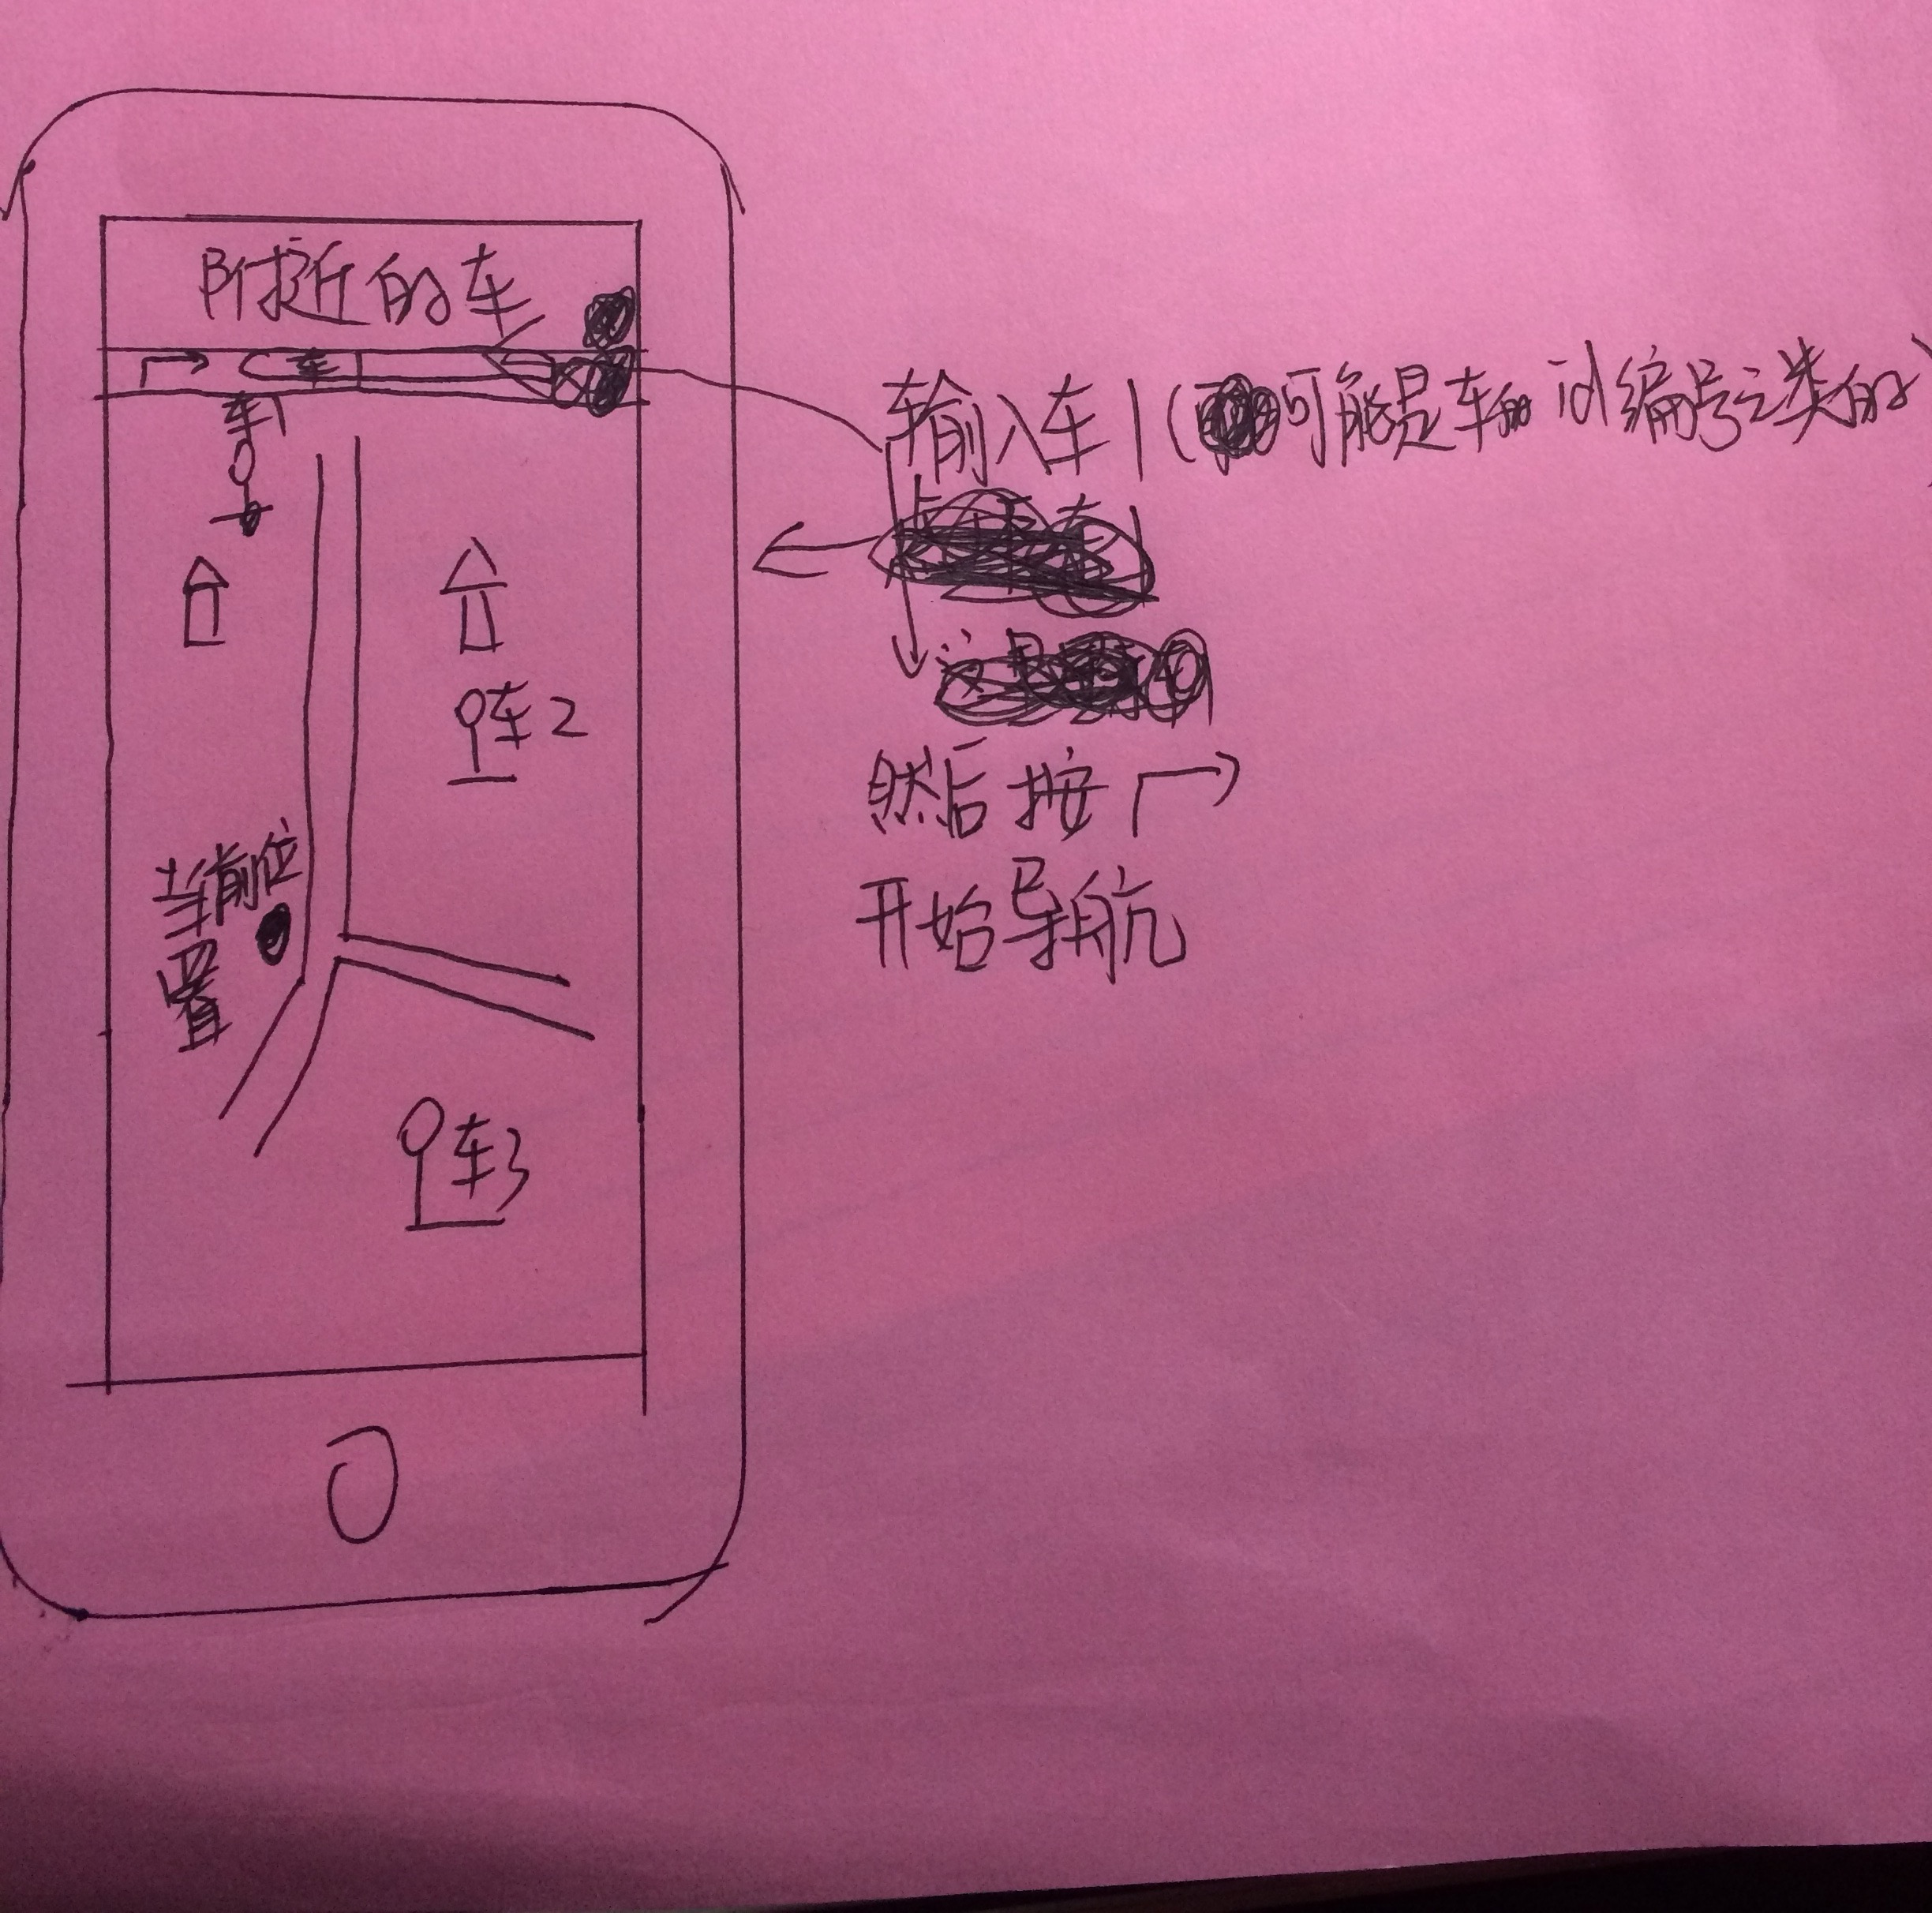 附近的车
车
车1
车2
当前位
置
车3
输入车1(可能是车的id编号之类的)
然后按
开始导航